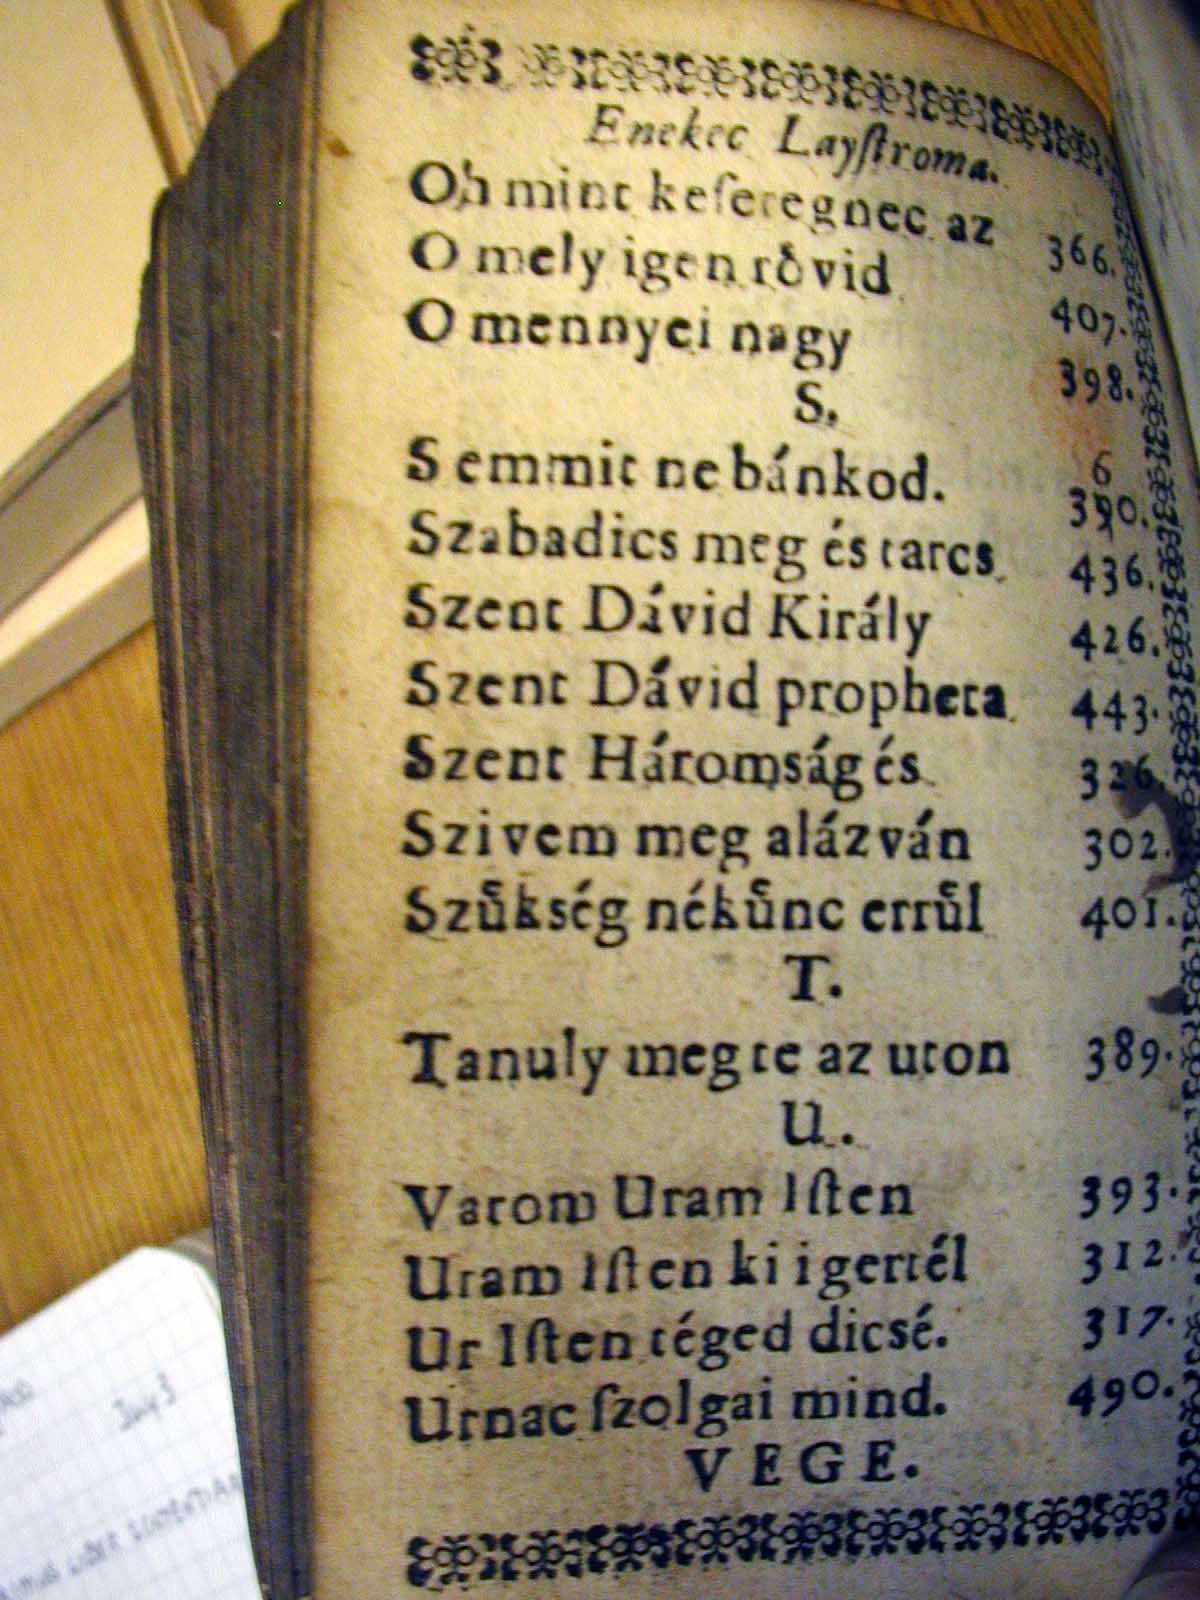 Enekec Layſtroma.
Oh mint keſeregnec az 366.
O mely igen rôvid 407.
O mennyei nagy 398.
S.
6
Semmit ne bánkod. 390.
Szabadics meg és tarcs 436.
Szent Dávid Király 426.
Szent Dávid propheta 443.
Szent Háromság és 326.
Szivem meg alázván 302.
Szuͤkség nékuͤnc erruͤl 401.
T.
Tanuly meg te az uton 389.
U.
Varom Uram Iſten 393.
Uram Iſten ki igertél 312.
Ur Iſten téged dicsé. 317.
Urnac ſzolgai mind. 490.
VEGE.